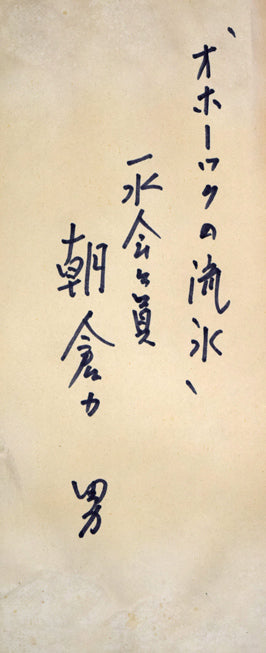 〝オホーツクの流氷〟
一水会々員
朝倉力男